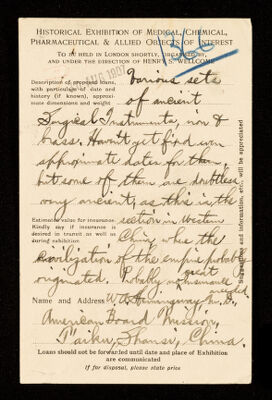 HISTORICAL EXHIBITION OF MEDICAL, CHEMICAL,
PHARMACEUTICAL & ALLIED OBJECTS OF INTEREST
TO BE HELD IN LONDON SHORTLY, ORGANISED BY,
AND UNDER THE DIRECTION OF HENRY S. WELLCOME
AUG 1907
Description of proposed loans,
with particulars of date and
history (if known), approxi-
mate dimensions and weight
Various sets
of ancient
Surgical Instruments, iron &
brass. Haven't yet fixed upon
approximate dates for them,
but some of them are doubtless
very ancient, as this is the
Estimated value for insurance
Kindly say if insurance
desired in transit as well as
during exhibition
section in Western
China where the
civilization of the empire probably
originated. Probably no great insurance
needed
Name and Address W. A. Hemingway M.D.
American Board Mission,
Taiku, Shansi, China.
Loans should not be forwarded until date and place of Exhibition
are communicated
If for disposal, please state price
Suggestions and information, etc., will be appreciated